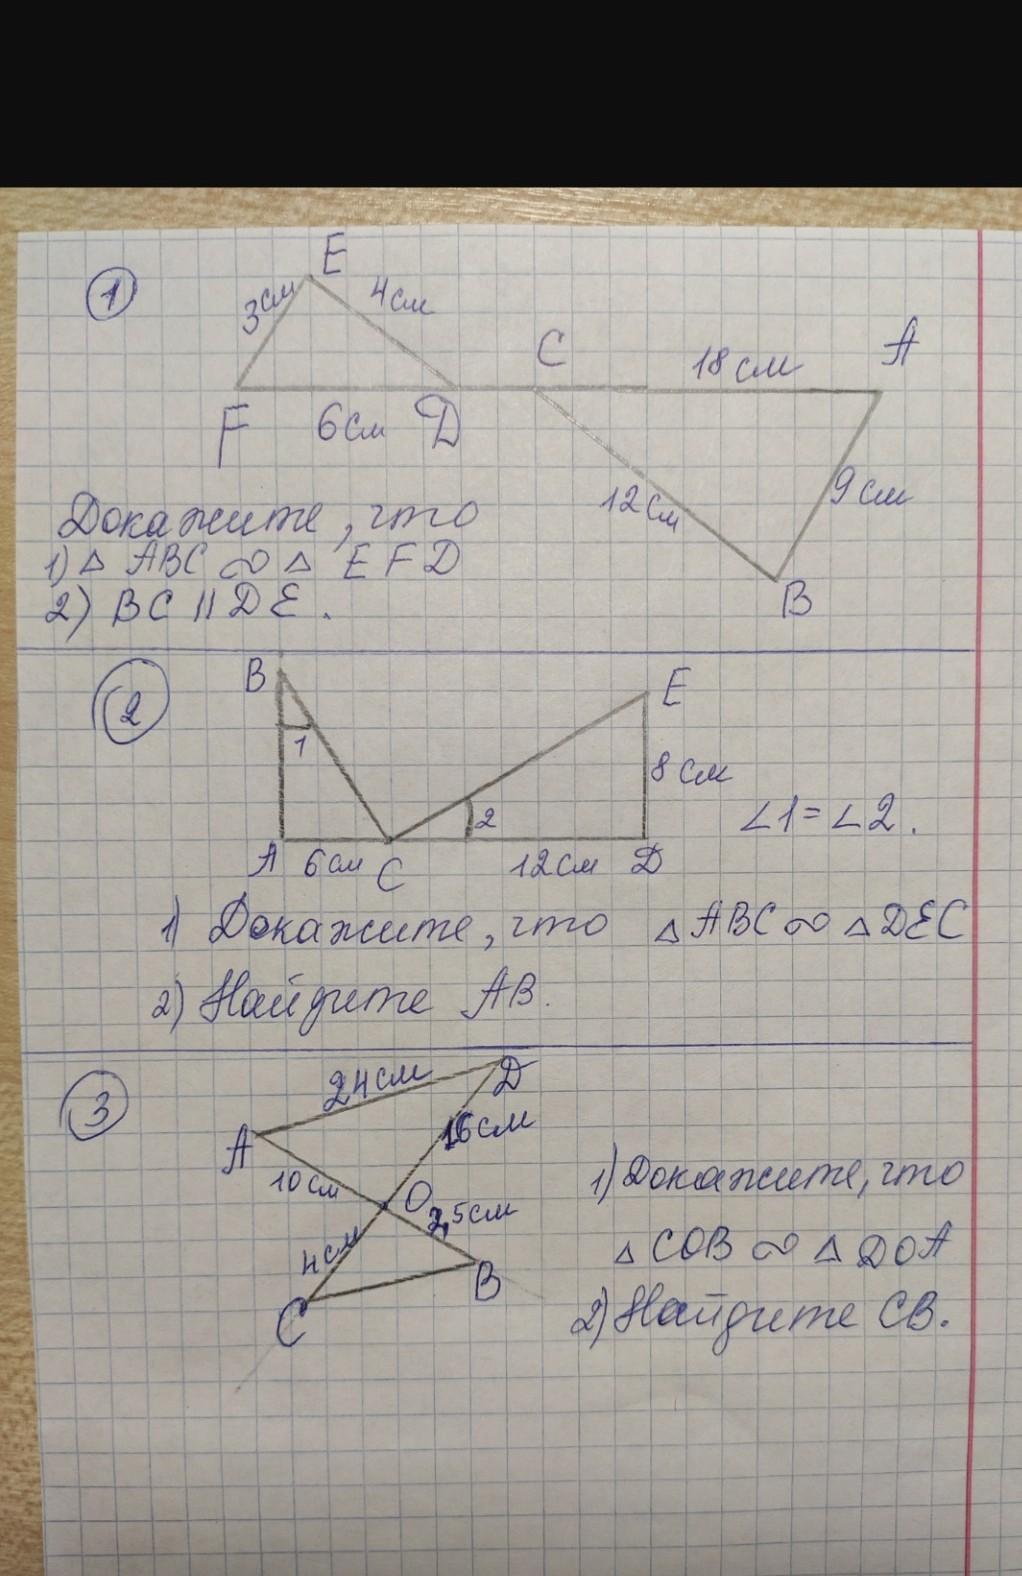 1
E
3см
4см
C
18 см
A
F
6см
D
12см
9 см
B
Докажите, что
1) △ ABC ∽ △ EFD
2) BC || DE.
2
B
E
1
8 см
2
∠1 = ∠2.
A
6см
C
12см
D
1) Докажите, что △ABC ∽ △DEC
2) Найдите AB.
3
24см
D
A
16см
10см
O
2,5см
4см
B
C
1) Докажите, что
△ COB ∽ △ DOA
2) Найдите CB.